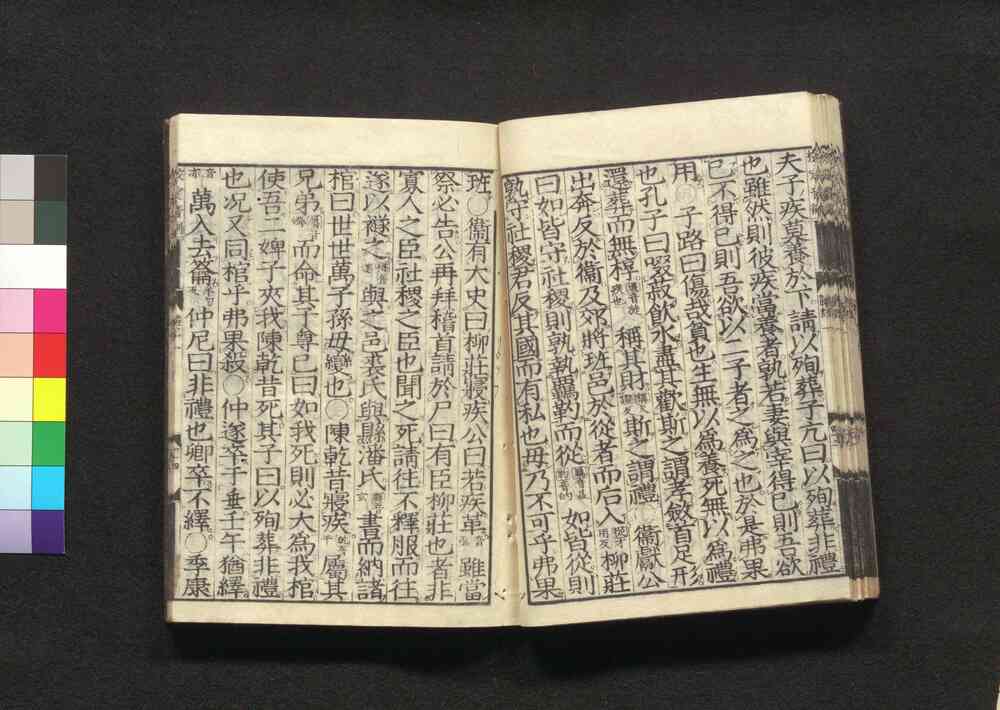 夫子疾莫養於下請以殉葬子亢曰以殉葬非禮
也雖然則彼疾當養者孰若妻與宰得已則吾欲
已不得已則吾欲以二子者之為之也於是弗果
用○子路曰傷哉貧也生無以為養死無以為禮
也孔子曰啜菽飲水盡其歡斯之謂孝斂首足形
還葬而無椁稱其財斯之謂禮○衞獻公
出奔反於衞及郊將班邑於從者而后入柳莊
曰如皆守社稷則孰執羈靮而從如皆從則
孰守社稷君反其國而有私也毋乃不可乎弗果
班○衞有大史曰柳莊寢疾公曰若疾革雖當
祭必告公再拜稽首請於尸曰有臣柳莊也者非
寡人之臣社稷之臣也聞之死請往不釋服而往
遂以襚之與之邑裘氏與縣潘氏書而納諸
棺曰世世萬子孫毋變也○陳乾昔寢疾屬其
兄弟而命其子尊已曰如我死則必大為我棺
使吾二婢子夾我陳乾昔死其子曰以殉葬非禮
也况又同棺乎弗果殺○仲遂卒于垂壬午猶繹
萬入去籥仲尼曰非禮也卿卒不繹○季康